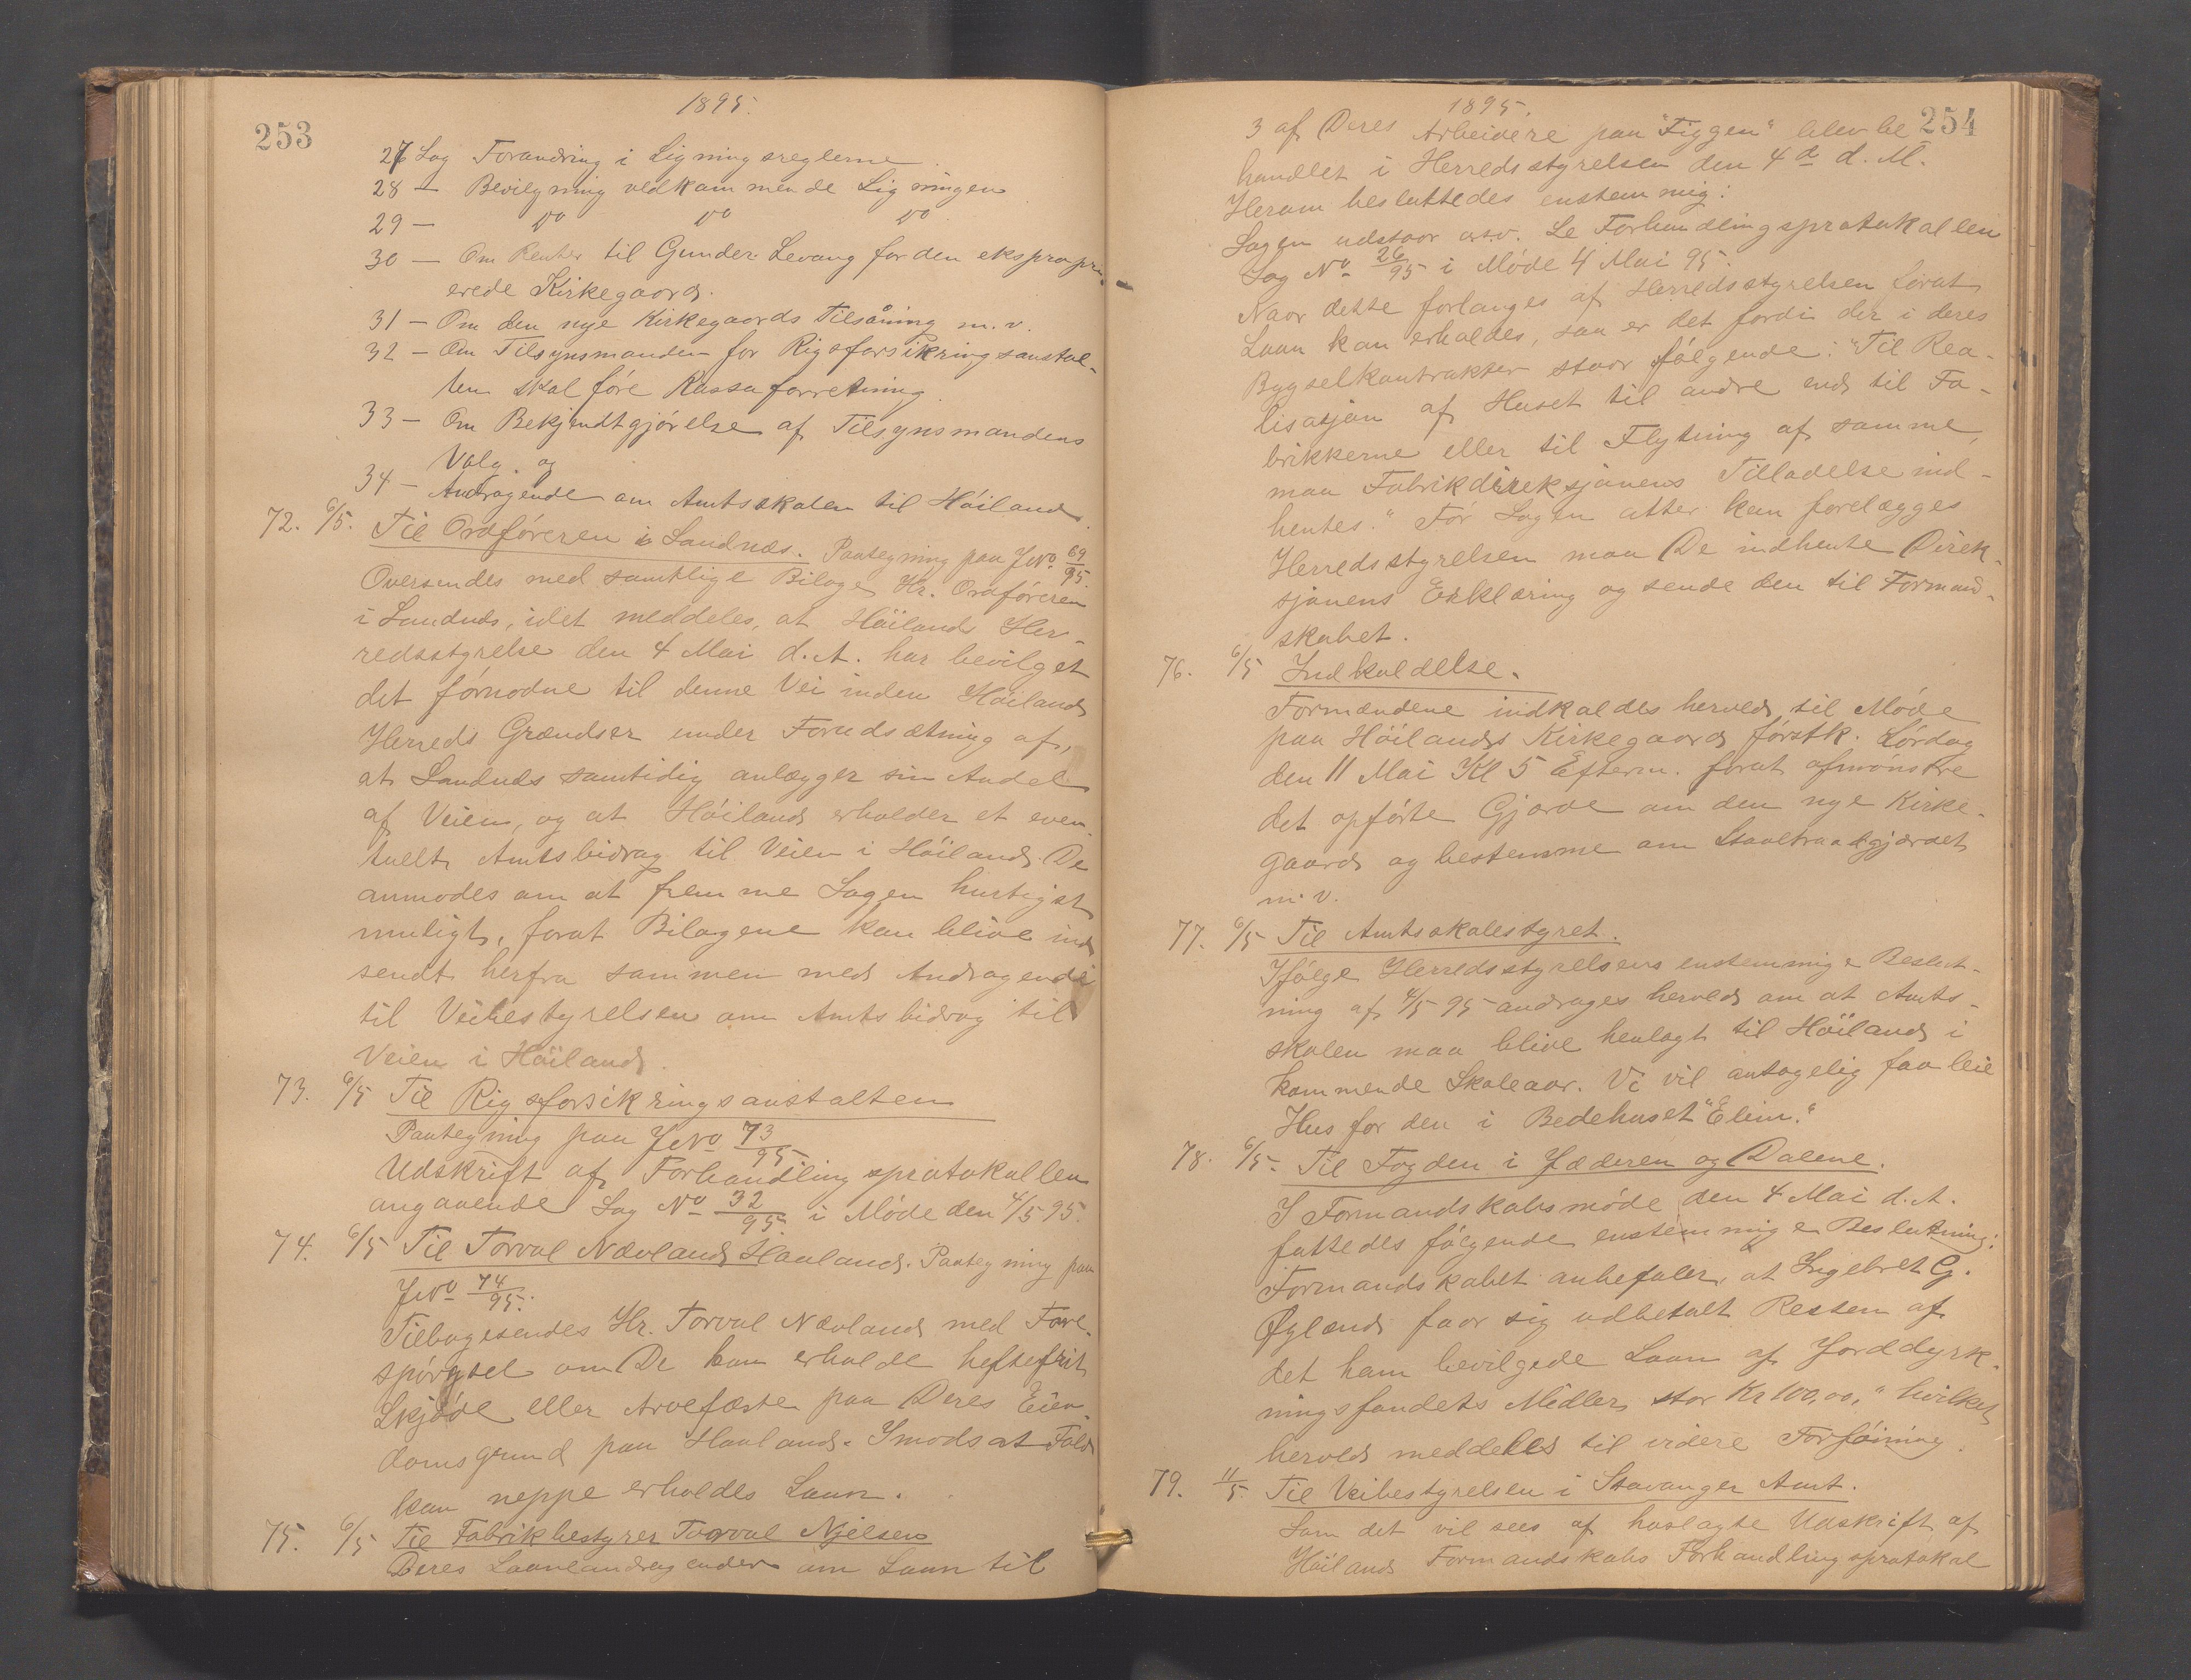 253
1895.
27 Sag Forandring i Ligningsreglerne
28 — Bevilgning vedkommende Ligningen
29 — Do Do Do
30 — Om Renter til Gunder Levang for den ekspropri-
erede Kirkegaard.
31 — Om den nye Kirkegaards Tilsåning m.v.
32 — Om Tilsynsmanden for Rigsforsikringsanstal-
ten skal føre Kassaforretning.
33 — Om Bekjendtgjørelse af Tilsynsmandens
Valg. og
34 — Andragende om Amtsskolen til Høiland.
72. 6/5. Til Ordføreren i Sandnæs. Paategning paa JNo 69/95.
Oversendes med samtlige Bilage Hr. Ordføreren
i Sandnæs, idet meddeles, at Høilands Her-
redsstyrelse den 4 Mai d.A. har bevilget
det førnodne til denne Vei inden Høilands
Herreds Grændser under Forudsætning af,
at Sandnæs samtidig anlægger sin Andel
af Veien, og at Høiland erholder et even-
tuelt Amtsbidrag til Veien i Høiland. De
anmodes om at fremme Sagen hurtigst
muligt, forat Bilagene kan blive ind
sendt herfra sammen med Andragende
til Veibestyrelsen om Amtsbidrag til
Veien i Høiland.
73. 6/5 Til Rigsforsikringsanstalten
Paategning paa JNo 73/95
Udskrift af Forhandlingsprotokollen
angaaende Sag No 32/95 i Møde den 4/5 95.
74. 6/5 Til Torval Nævland Haaland. Paategning paa
JNo 74/95.
Tilbagesendes Hr. Torval Nævland med Fore-
spørgsel om De kan erholde heftefrit
Skjøde eller Arvefæste paa Deres Eien-
domsgrund paa Haaland. I modsat Fald
kan neppe erholdes Laan.
75. 6/5 Til Fabrikbestyrer Torval Njelsen
Deres Laaneandragender om Laan til
254
1895.
3 af Deres Arbeidere paa "Figgen" blev be
handlet i Herredsstyrelsen den 4de d. M.
Herom besluttedes enstemmig:
Sagen udstaar osv. Se Forhandlingsprotokollen
Sag No 26/95 i Møde 4 Mai 95.
Naar dette forlanges af Herredsstyrelsen forat
Laan kan erholdes, saa er det fordi der i deres
Bygselkontrakter staar følgende: "Til Rea-
lisasjon af Huset til andre end til Fa-
brikkerne eller til Flytning af samme,
maa Fabrikdireksjonens Tilladelse ind-
hentes." Før Sagen atter kan forelægges
Herredsstyrelsen maa De indhente Direk-
sjonens Erklæring og sende den til Formand-
skabet.
76. 6/5 Indkaldelse.
Formændene indkaldes herved til Møde
paa Høilands Kirkegaard førstk. Lørdag
den 11 Mai Kl 5 Efterm. forat afmønstre
det opførte Gjærde om den nye Kirke-
gaard og bestemme om Staaltraadgjærdet
m.v.
77. 6/5 Til Amtsskolestyret.
Ifølge Herredsstyrelsens enstemmige Beslut-
ning af 4/5 95 andrages herved om at Amts-
skolen maa blive henlagt til Høiland i
kommende Skoleaar. Vi vil antagelig faa leie
Hus for den i Bedehuset "Elim."
78. 6/5. Til Fogden i Jæderen og Dalene.
I Formandskabsmøde den 4 Mai d.A.
fattedes følgende enstemmige Beslutning:
Formandskabet anbefaler, at Ingebret G.
Øglænd faar sig udbetalt Resten af
det ham bevilgede Laan af Jorddyrk-
ningsfondets Midler stor Kr 100,00," hvilket
herved meddeles til videre Forføining.
79. 11/5. Til Veibestyrelsen i Stavanger Amt.
Som det vil sees af hoslagte Udskrift af
Høilands Formandskabs Forhandlingsprotokol